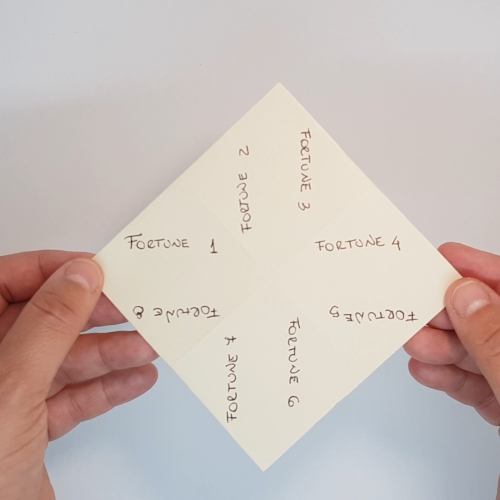 FORTUNE 1
FORTUNE 2
FORTUNE 3
FORTUNE 4
FORTUNE 5
FORTUNE 6
FORTUNE 7
FORTUNE 8